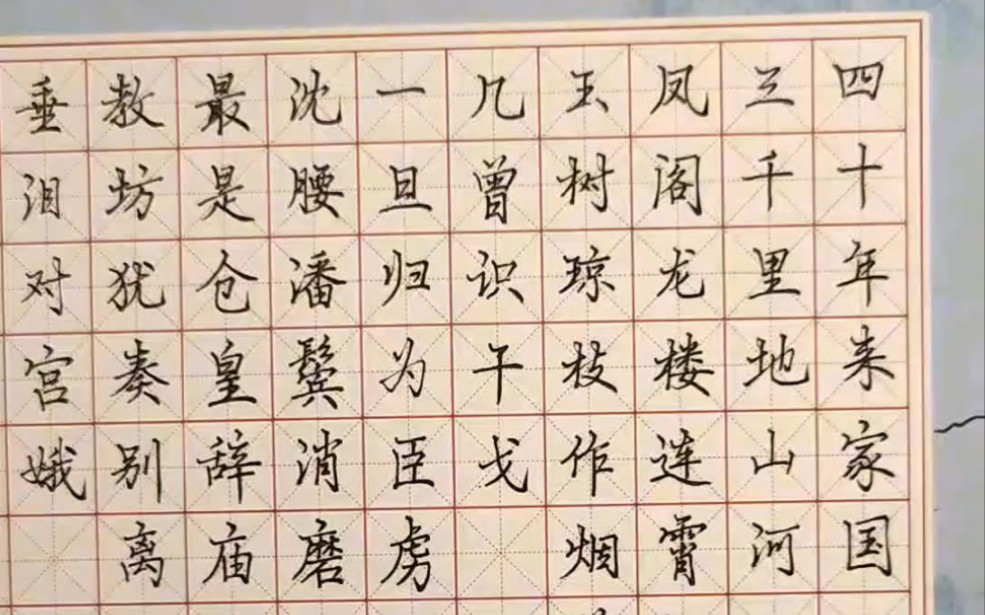 四十年来家国
三千里地山河
凤阁龙楼连霄
玉树琼枝作烟
几曾识干戈
一旦归为臣虏
沈腰潘鬓消磨
最是仓皇辞庙
教坊犹奏别离
垂泪对宫娥